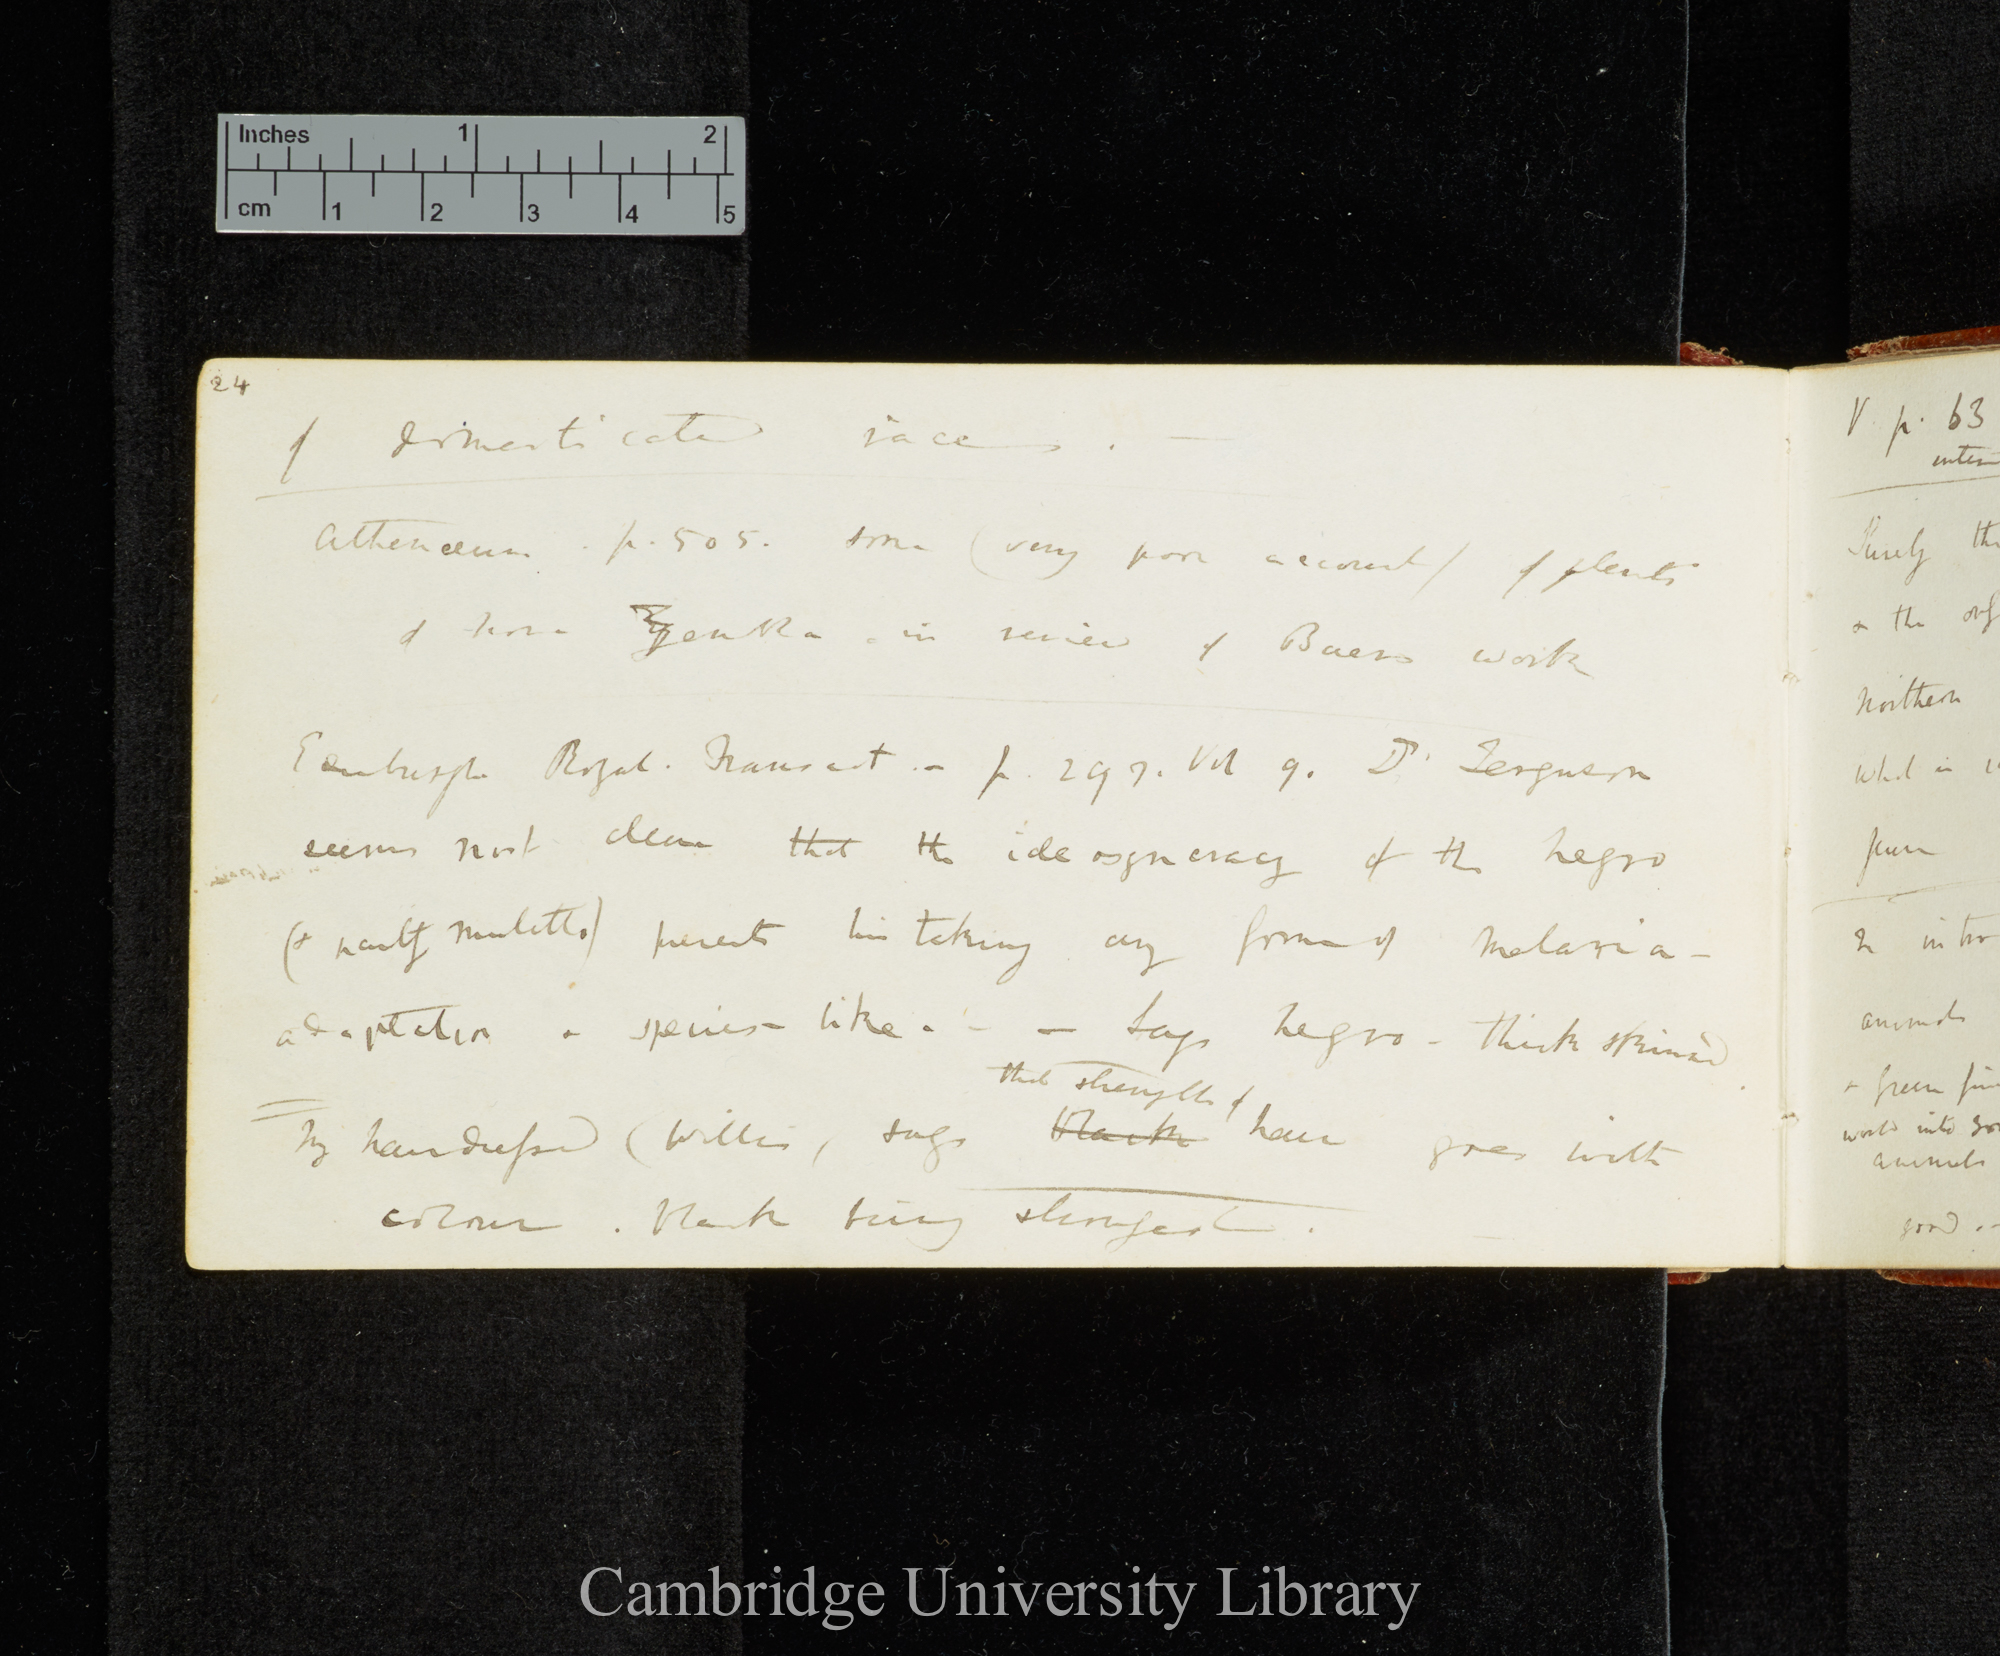 Inches 1 2
cm 1 2 3 4 5
24
of domesticated races. —
Athenæum. p. 505. some (very poor account) of plants
of Nova Zembla in review of Baers work
Edinburgh Royal. Transact. — p. 297. Vol 9. Dr Ferguson
seems most clear that the ideosyncracy of the negro
(& partly mulatto) prevents his taking any form of Malaria —
adaptation & species-like. — — Says negro — thick skinned
that strength of
My hairdresser (Willis) says black hair goes with
colour. black being strongest.
V p. 63
Surely
& the
Northern
what is
pure
in intro
animals
& from
world into
animals
good. —
Cambridge University Library